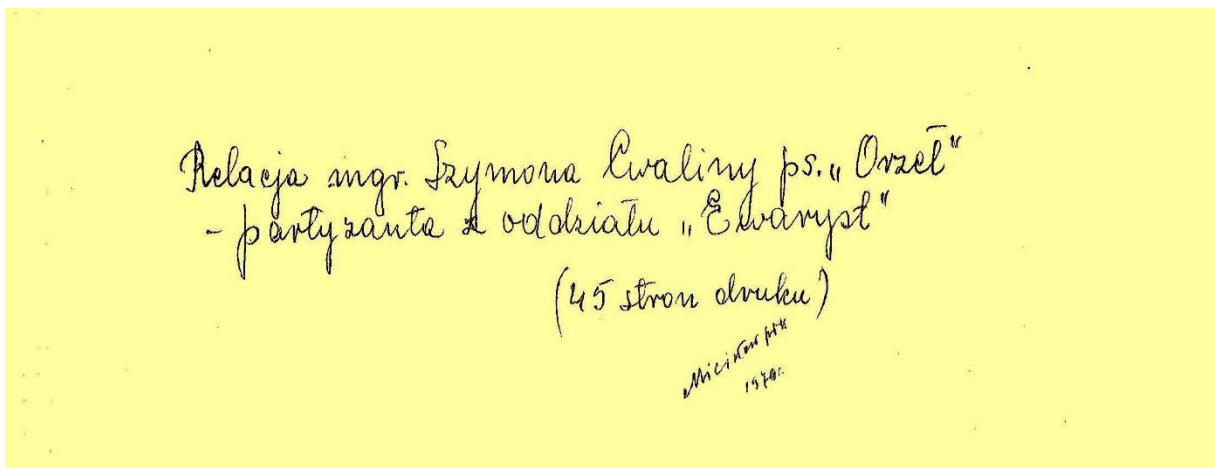 Relacja mgr. Szymona Cwaliny ps. „Orzeł"
- partyzanta z oddziału „Ewaryst"
(45 stron druku)
1970r.